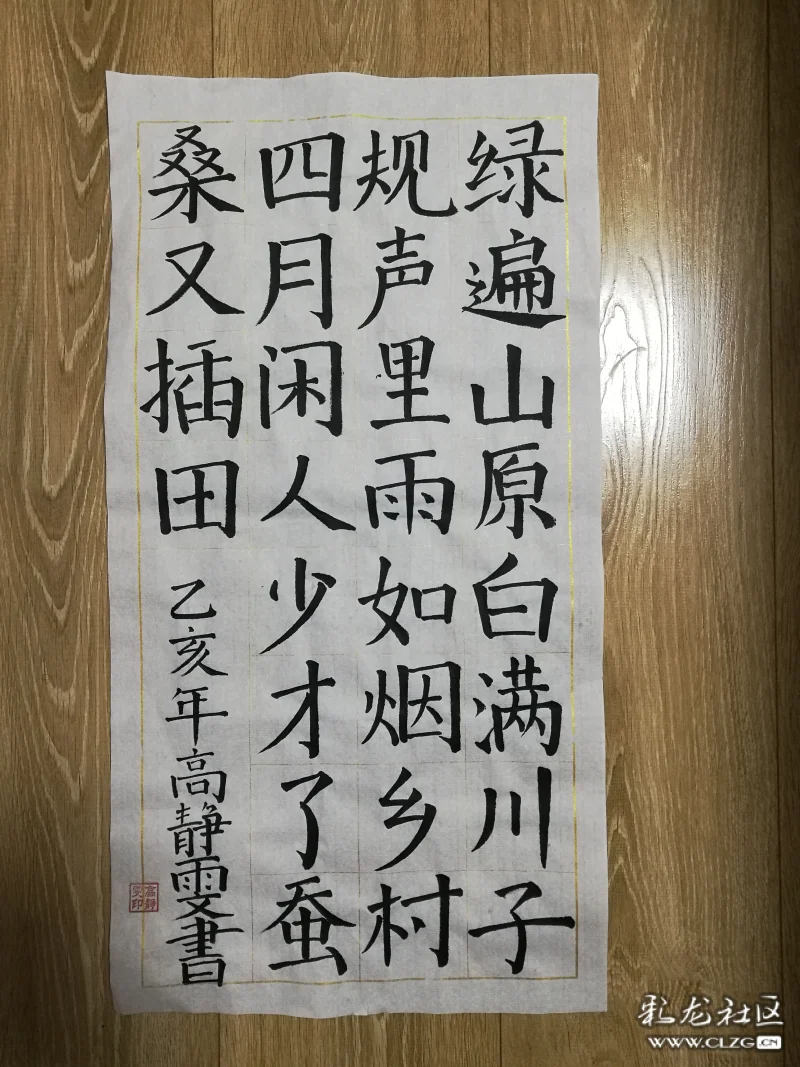 绿遍山原白满川子
规声里雨如烟乡村
四月闲人少才了蚕
桑又插田
乙亥年高静雯書
高静雯印
彩龙社区
WWW.CLZG.CN